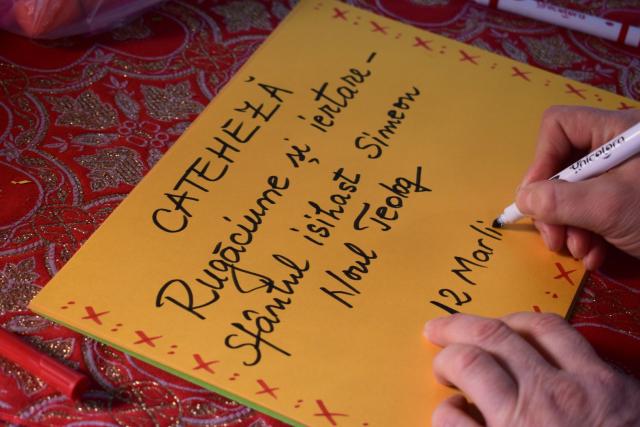 CATEHEZĂ
Rugăciune și iertare -
Sfântul isihast Simeon
Noul Teolog
12 Marti
Unicolora